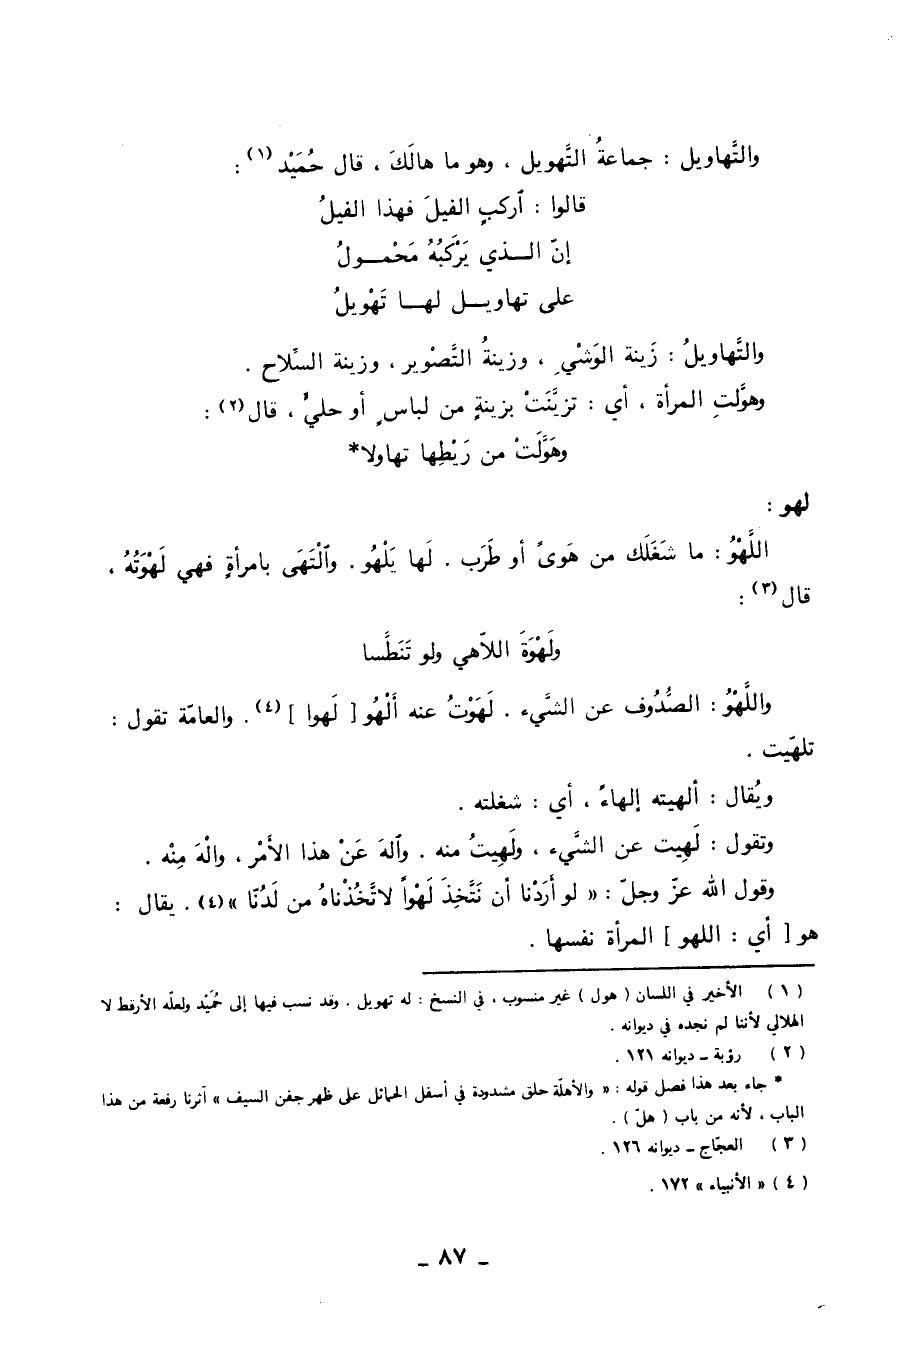 والتَّهاويل : جماعةُ التَّهويل ، وهو ما هالَكَ ، قال حُمَيْد (١) :
قالوا : ٱركبِ الفيلَ فهذا الفيلُ
إنّ الــذي يَرْكَبُهُ مَحْمــولُ
على تهاويــل لهــا تَهْويلُ
والتَّهاويلُ : زَينة الوَشْيِ ، وزينةُ التَّصْوير ، وزينة السِّلاح .
وهوَّلتِ المرأة ، أي : تزيَّنَتْ بزينةٍ من لباسٍ أو حليٍّ ، قال (٢) :
وهَوَّلَتْ من رَيْطِها تهاولا*
لهو :
اللَّهْوُ : ما شَغَلَك من هَوىً أو طَرَب . لَها يَلْهُو . وٱلْتَهَى بامرأةٍ فهي لَهْوَتُهُ ،
قال (٣) :
ولَهْوَةَ اللاّهي ولو تَنَطَّسا
واللَّهْوُ : الصُّدُوف عن الشَّيء . لَهَوْتُ عنه أَلْهُو [ لَهوا ] (٤) . والعامّة تقول :
تلهّيت .
ويُقال : ألهيته إلهاءً ، أي : شغلته .
وتقول : لَهِيت عن الشَّيء ، ولَهِيتُ منه . وٱلهَ عَنْ هذا الأَمْر ، والْهَ مِنْه .
وقول الله عزّ وجلّ : « لو أَرَدْنا أن نَتَّخِذَ لَهْواً لاتَّخُذْناهُ من لَدُنّا » (٤) . يقال :
هو [ أي : اللهو ] المرأة نفسها .
( ١ ) الأخير في اللسان ( هول ) غير منسوب ، في النسخ : له تهويل . وقد نسب فيها إلى حُمَيْد ولعلّه الأرقط لا
الهلالي لأننا لم نجده في ديوانه .
( ٢ ) رؤبة ــ ديوانه ١٢١ .
* جاء بعد هذا فصل قوله : « والأهلّة حلق مشدودة في أسفل الحمائل على ظهر جفن السيف » آثرنا رفعة من هذا
الباب ، لأنه من باب ( هلّ ) .
( ٣ ) العجّاج ــ ديوانه ١٢٦ .
( ٤ ) « الأنبياء » ١٧٢ .
ــ ٨٧ ــ